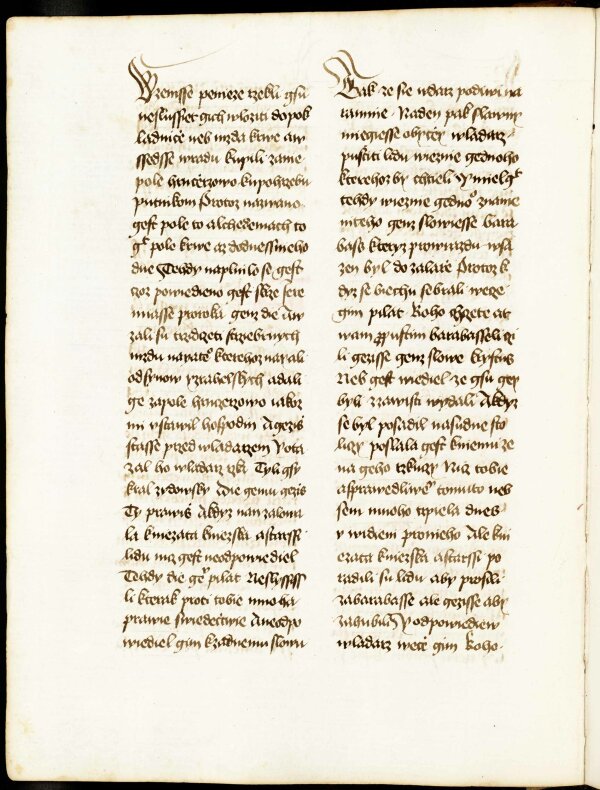 Wzemsse penieze rzekli gsu
neslussiet gich wlozit do pok
ladnice neb mzda krwe
ssedsse w radu kupili za nie
pole hrnczerzowo ku pohrzebu
putnikom Protoz nazwano
gest pole to alchedemach to
gest pole krwe az do dnessnieho
dne Tehdy naplnilo se gest
toz powiedieno gest skrze Jere
miasse proroka genz die
zali su trzidczeti strziebrnych
mzdu na ktereho
od synow yzrahelskych a dali
ge za pole hrnczerzowo iakoz
mi ustawil hospodin A gezis
stasse przed wladarzem Y ota
zal ho wladarz rzka Tyli gsy
kral zydowsky Die gemu gezis
Ty prawis A kdyz nan zalowa
la kniezata knieska a starssi
lidu nicz gest neodpowiediel
Tehdy die gemu pilat Neslyssiss
li kterak proti tobie mnoha
prawie swiedectwie A neodpo
wiediel gim k zadnemu slowu
Tak ze sie wladarz podiwi na
ramnie Na den pak slawny
miegiesse obyczey wladarz
pustiti lidu wiezne gednoho
kterehoz by chtieli Y miel gest
tehdy wiezne gednoho zname
niteho genz slowiesse bara
bass kteryz pro wrazdu wsa
zen byl do zalarze Protoz k
dyz se biechu sebrali wecze
gim pilat Koho chczete at
wam propustim barabasseli czi
li gezisse genz slowe krystus
Neb gest wiediel ze gsu gey
byli z zawisti wydali A kdyz
se byl posadil na sudne sto
lici poslala gest k niemu ze
na geho rzkuczy Nicz tobie
a sprawedliwemu tomuto neb
sem mnoho trpiela dnes
y widiem pro nieho Ale kni
ezata knieska a starssi po
radili su lidu aby prosili
za barabasse ale gezisse aby
zahubili Y odpowiediew
wladarz wece gim Koho